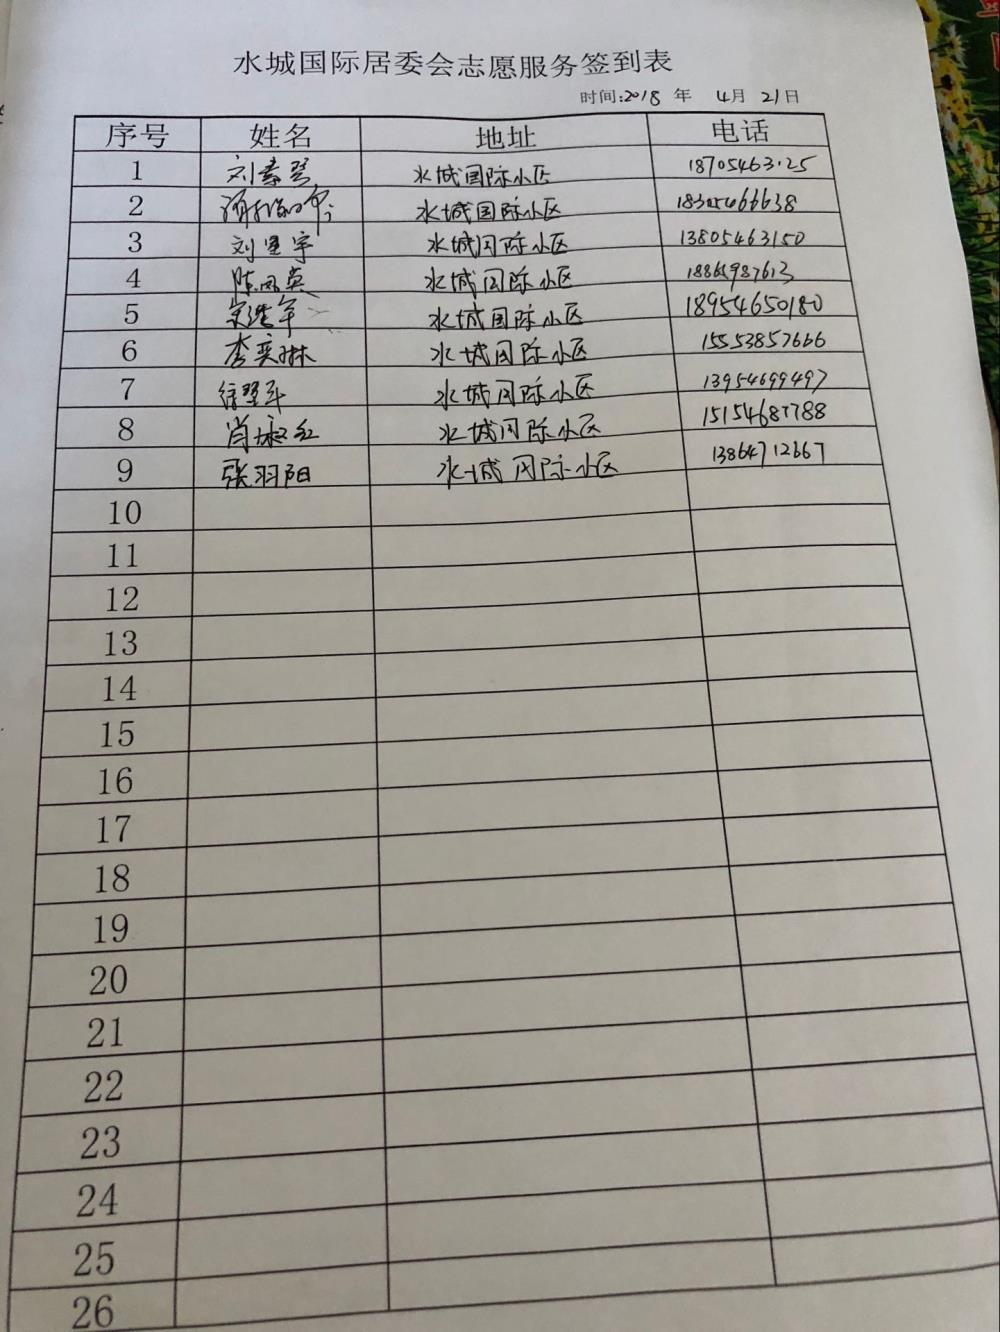 水城国际居委会志愿服务签到表
时间:2018 年 4月 21日
序号 姓名 地址 电话
1 刘素琴 水城国际小区 18705463125
2 水城国际小区 18305466638
3 刘星宇 水城国际小区 13805463150
4 陈凤英 水城国际小区 18864987613
5 水城国际小区 18954650180
6 李奕琳 水城国际小区 15553857666
7 徐翌乔 水城国际小区 13954699497
8 肖 水城国际小区 15154687788
9 张羽阳 水城国际小区 13864712667
10
11
12
13
14
15
16
17
18
19
20
21
22
23
24
25
26